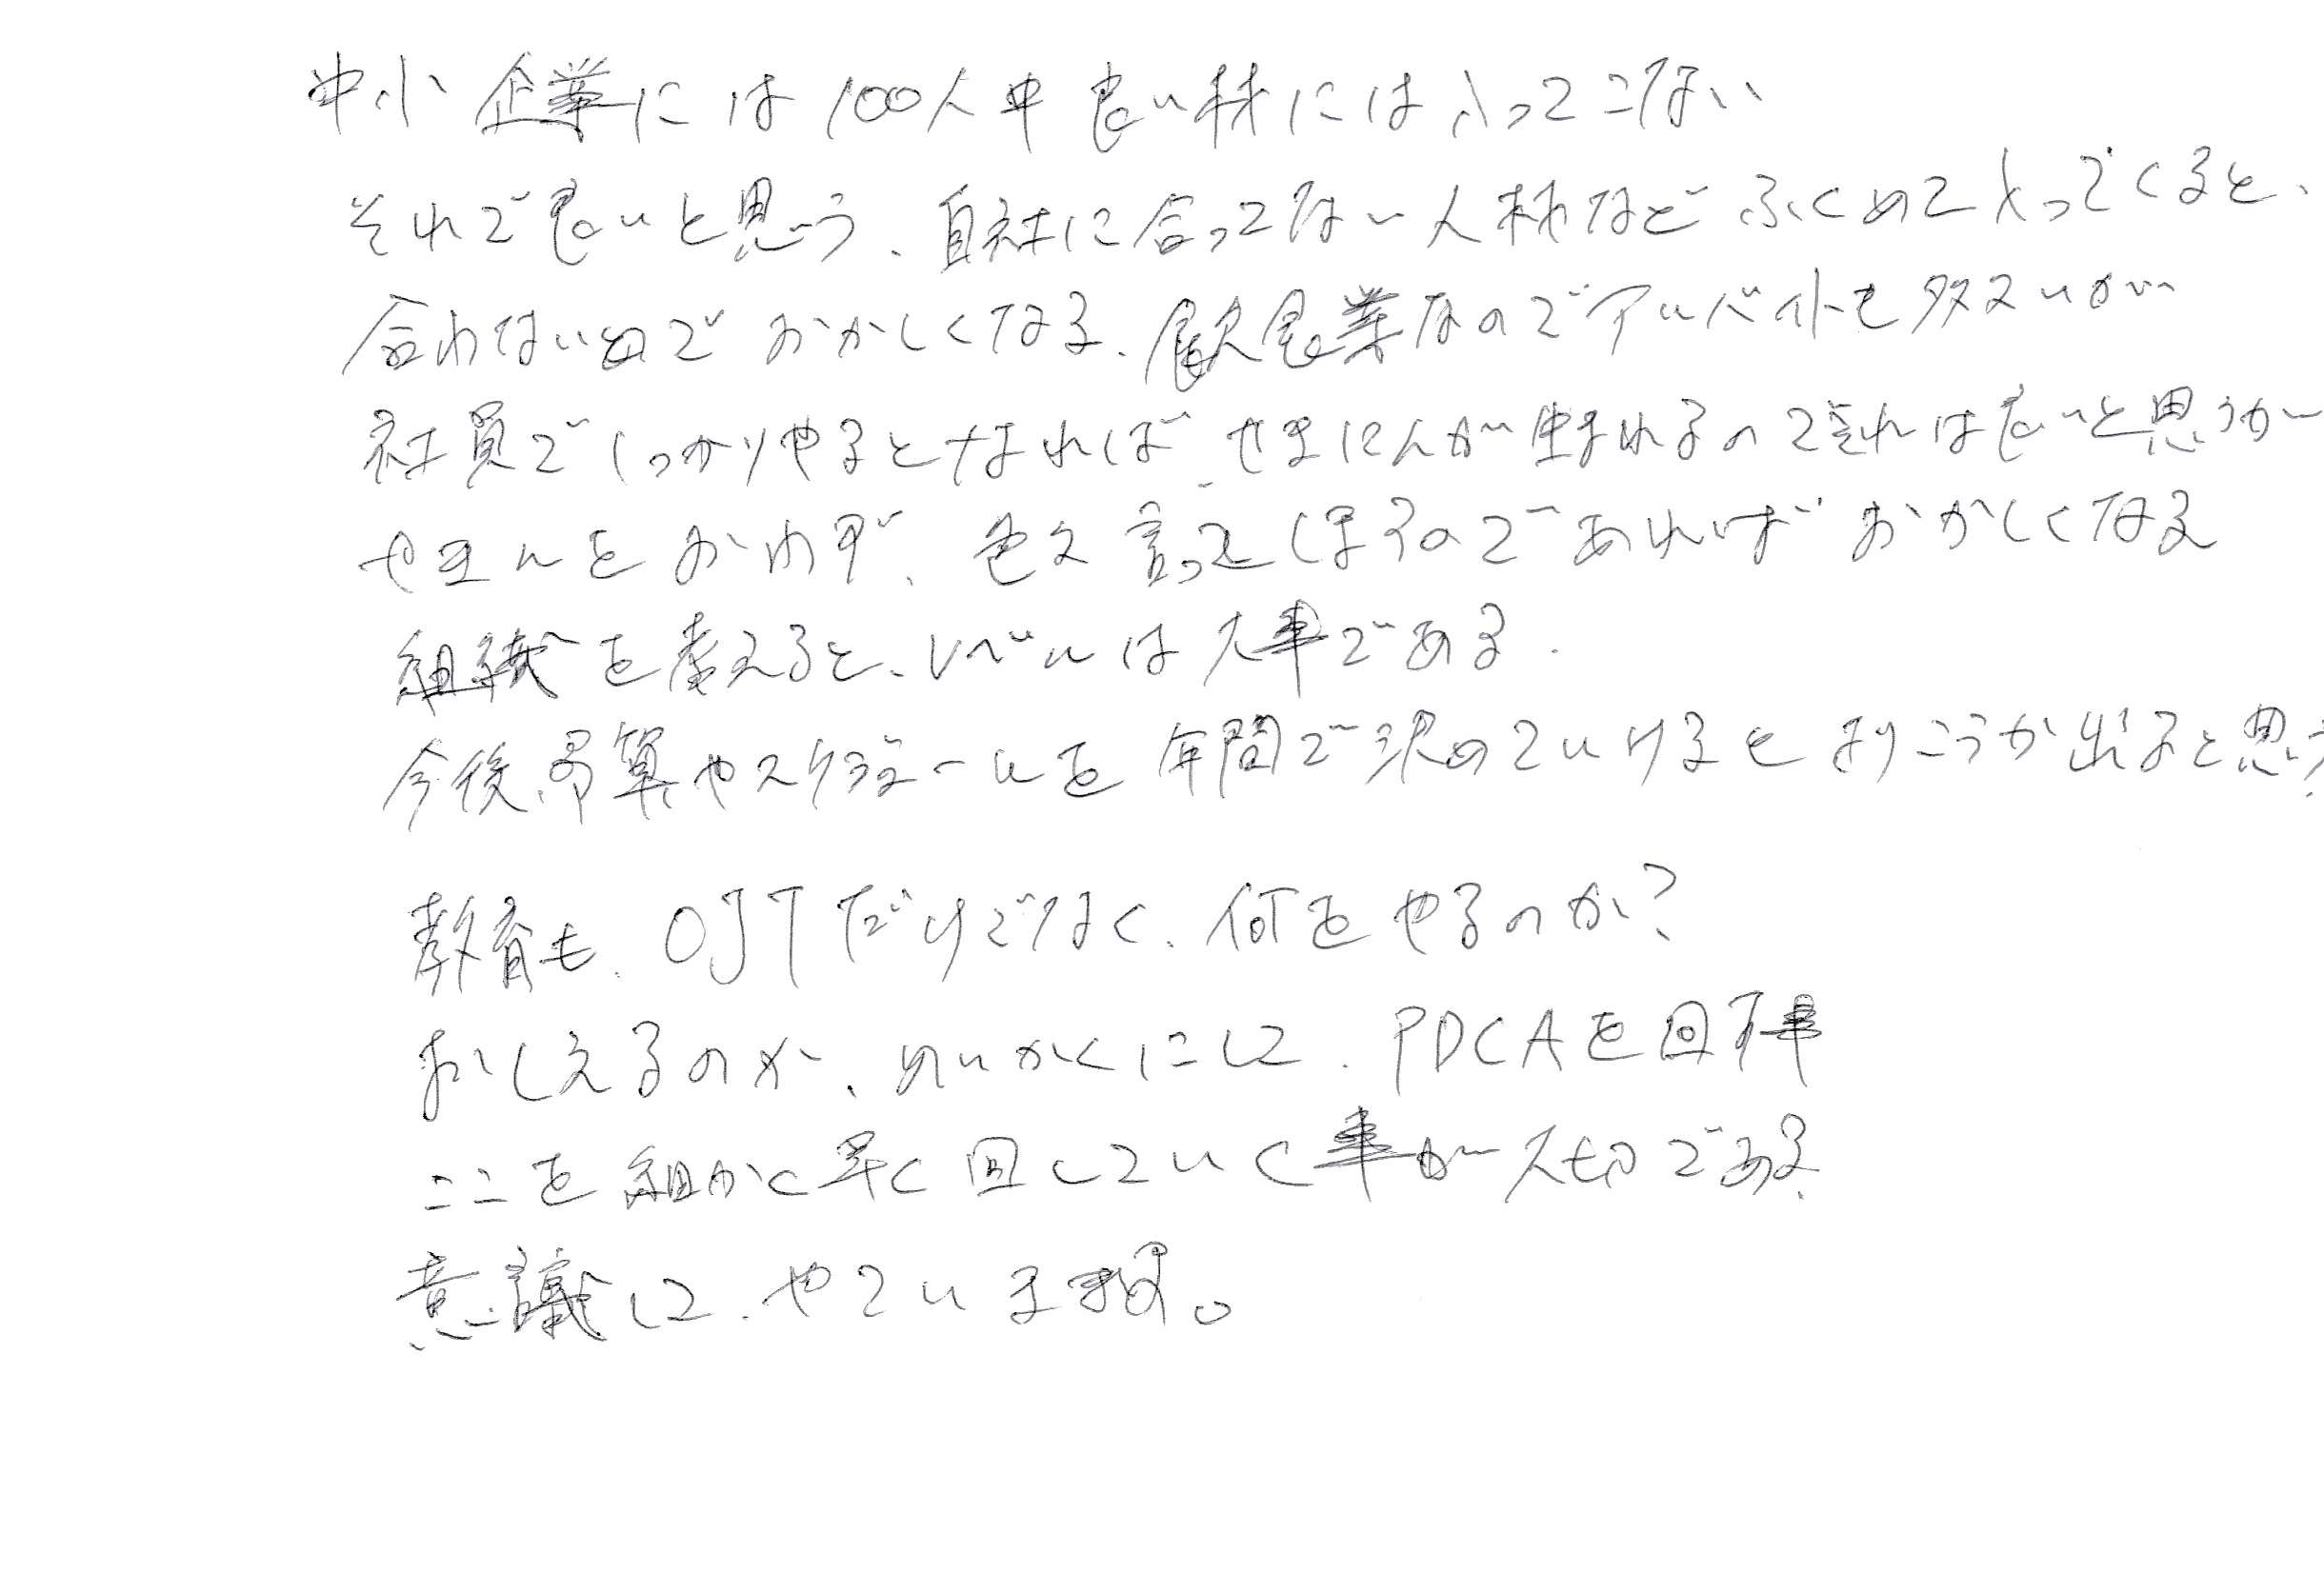 中小企業には100人中良い材にはふってこない
それで良いと思う、自社に合ってない人材などふくめてとってくると、
合わないのでおかしくなる、飲食業なのでアルバイトも多いが
社員でしっかりやるとなればせきにんが生まれるのでそれは良いと思うが
を おわず、色々言って のであればおかしくなる
組織を考えると、レベルは大事である.
今後、予算やスケジュールを年間で決めていけると こうか出ると思う.
教育も、OJTだけでなく、何をやるのか?
おしえるのか、めいかくにして、PDCAを回す事
ここを細かく早く回していく事が大切である.
意識して、やていきます。